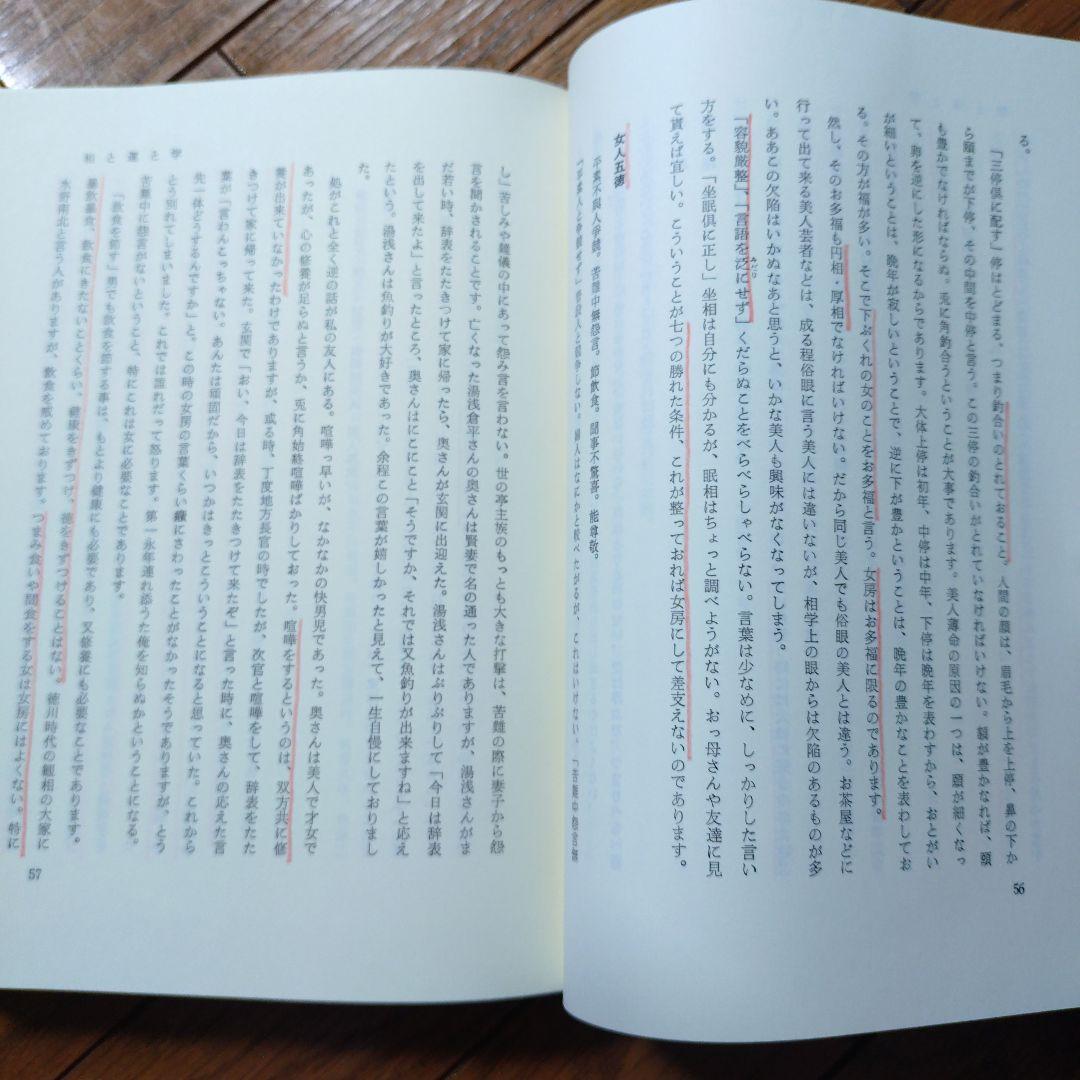 る。
「三停倶に配す」停はとどまる。つまり釣合いのとれておること。人間の顔は、眉毛から上を上停、鼻の下か
ら頤までが下停、その中間を中停と言う。この三停の釣合いがとれていなければいけない。額が豊かなれば、頤
も豊かでなければならぬ。兎に角釣合うということが大事であります。美人薄命の原因の一つは、頤が細くなっ
て、卵を逆にした形になるからであります。大体上停は初年、中停は中年、下停は晩年を表わすから、おとがい
が細いということは、晩年が寂しいということで、逆に下が豊かということは、晩年の豊かなことを表わしてお
る。その方が福が多い。そこで下ぶくれの女のことをお多福と言う。女房はお多福に限るのであります。
然し、そのお多福も円相・厚相でなければいけない。だから同じ美人でも俗眼の美人とは違う。お茶屋などに
行って出て来る美人芸者などは、成る程俗眼に言う美人には違いないが、相学上の眼からは欠陥のあるものが多
い。ああこの欠陥はいかぬなあと思うと、いかな美人も興味がなくなってしまう。
「容貌厳整」、「言語を泛にせず」くだらぬことをべらべらしゃべらない。言葉は少なめに、しっかりした言い
みだり
方をする。「坐眠倶に正し」坐相は自分にも分かるが、眠相はちょっと調べようがない。おっ母さんや友達に見
て貰えば宜しい。こういうことが七つの勝れた条件、これが整っておれば女房にして差支えないのであります。
女人五徳
平素不与人争競。苦難中無怨言。節飲食。聞事不驚喜。能尊敬。
「平素人と争競せず」普段人と競争しない。婦人はなにかと較べたがるが、これはいけない。「苦難中怨言無
56
し」苦しみや難儀の中にあって怨み言を言わない。世の亭主族のもっとも大きな打撃は、苦難の際に妻子から怨
言を聞かされることです。亡くなった湯浅倉平さんの奥さんは賢妻で名の通った人でありますが、湯浅さんがま
だ若い時、辞表をたたきつけて家に帰ったら、奥さんが玄関に出迎えた。湯浅さんはぷりぷりして「今日は辞表
を出して来たよ」と言ったところ、奥さんはにこにこと「そうですか、それでは又魚釣りが出来ますね」と応え
たという。湯浅さんは魚釣りが大好きであった。余程この言葉が嬉しかったと見えて、一生自慢にしておりまし
た。
処がこれと全く逆の話が私の友人にある。喧嘩っ早いが、なかなかの快男児であった。奥さんは美人で才女で
あったが、心の修養が足らぬと言うか、兎に角始終喧嘩ばかりしておった。喧嘩をするというのは、双方共に修
養が出来ていなかったわけでありますが、或る時、丁度地方長官の時でしたが、次官と喧嘩をして、辞表をたた
きつけて家に帰って来た。玄関で「おい、今日は辞表をたたきつけて来たぞ」と言った時に、奥さんの応えた言
葉が「言わんこっちゃない。あんたは頑固だから、いつかはきっとこういうことになると思っていた。これから
先一体どうするんですか」と。この時の女房の言葉くらい癪にさわったことがなかったそうでありますが、とう
とう別れてしまいました。これでは誰れだって怒ります。第一永年連れ添うた俺を知らぬかということになる。
苦難中に怨言がないということ、特にこれは女に必要なことであります。
「飲食を節す」男でも飲食を節する事は、もとより健康にも必要であり、又修養にも必要なことであります。
暴飲暴食、飲食にきたないことくらい、健康をきずつけ、徳をきずつけることはない。徳川時代の観相の大家に
水野南北と言う人がありますが、飲食を戒めております。つまみ食いや間食をする女は女房にはよくない。特に
学と運と相
57